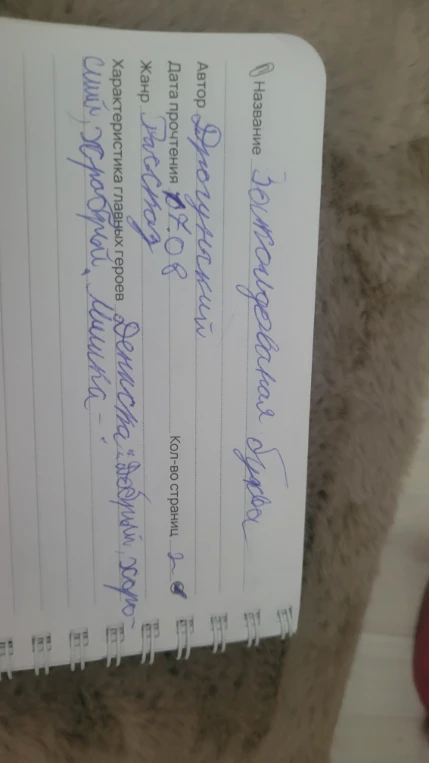 Название Заколдованая буква
Автор Драгунский
Дата прочтения 17.08 Кол-во страниц 2
Жанр Рассказ
Характеристика главных героев Дениска: добрый, хоро-
ший, храбрый. Мишка -